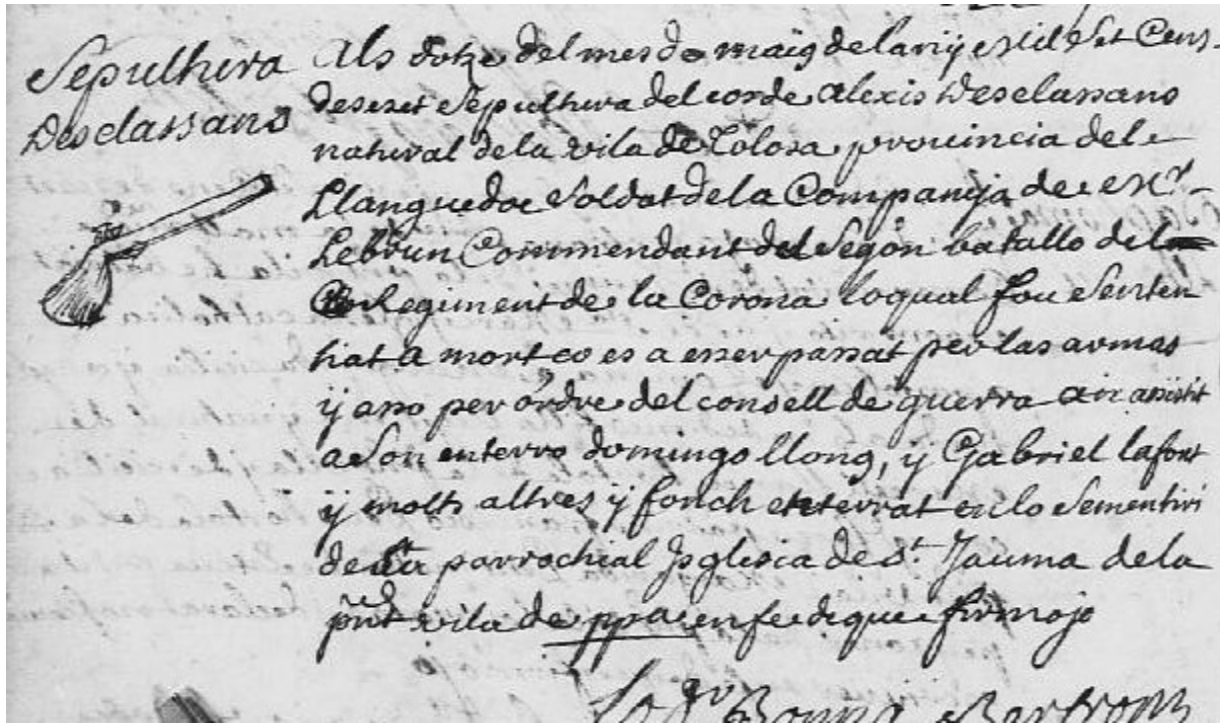 Sepulthura
Desclassano
Als dotze del mes de maig del anÿ Mil Set Cens
deset Sepulthura del cos de Alexis Desclassano
natural de la vila de Tolosa provincia del
Llanguedoc Soldat de la Companÿa de Mr
Lebrun Commendant del Segon batallo del
Regiment de la Corona loqual fou Senten
tiat a mort co es a esser passat per las armas
ÿ asso per ordre del consell de guerra an assistit
a Son enterro domingo llong, ÿ Gabriel lafont
ÿ molts altres ÿ fonch enterrat en lo Sementiri
de la parrochial Isglesia de St. Jauma de la
pnt vila de ppa en fe de que firmo jo